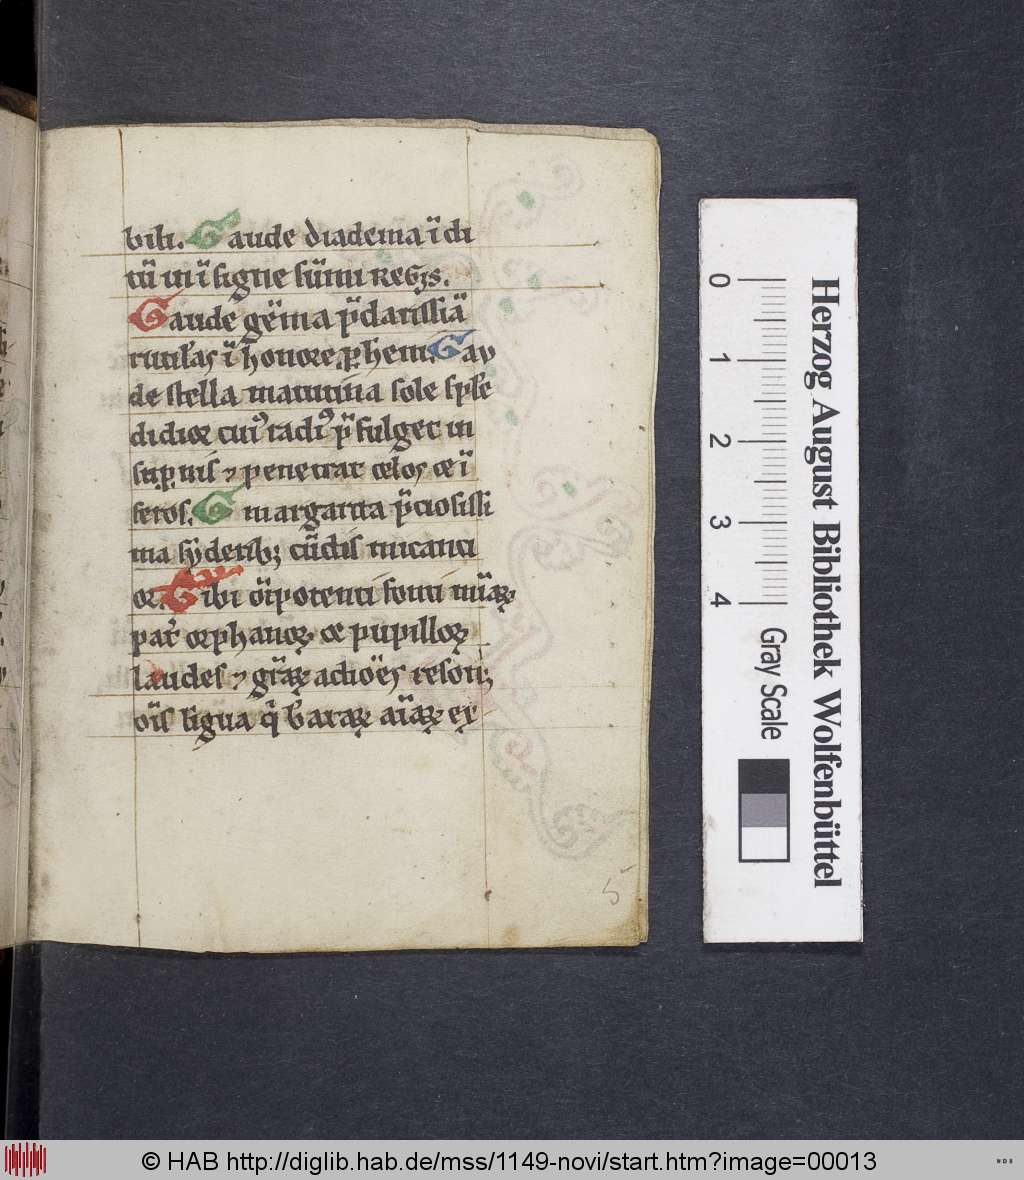 bili. Gaude diadema ī cli
tū in īsigne sūmi REGꝫs.
Gaude gēma p̄clarissīa
rutilās ī honore ꝑhem. Gau
de stella matutina sole sple
didior cuiꝰ radiꝰ p̄fulget in
suꝑnis ⁊ penetrat celos et ī
feros. G margarita p̄ciosissi
ma syderibꝫ cūctis micanci
or. Tibi oīpotenti fonti
patͥ orphanoꝝ et pupilloꝝ
laudes ⁊ gr̄aꝝ actiōes
oīs līgua aīaꝝ ex
5
0
1
2
3
4
Gray Scale
Herzog August Bibliothek Wolfenbüttel
© HAB http://diglib.hab.de/mss/1149-novi/start.htm?image=00013
WDB